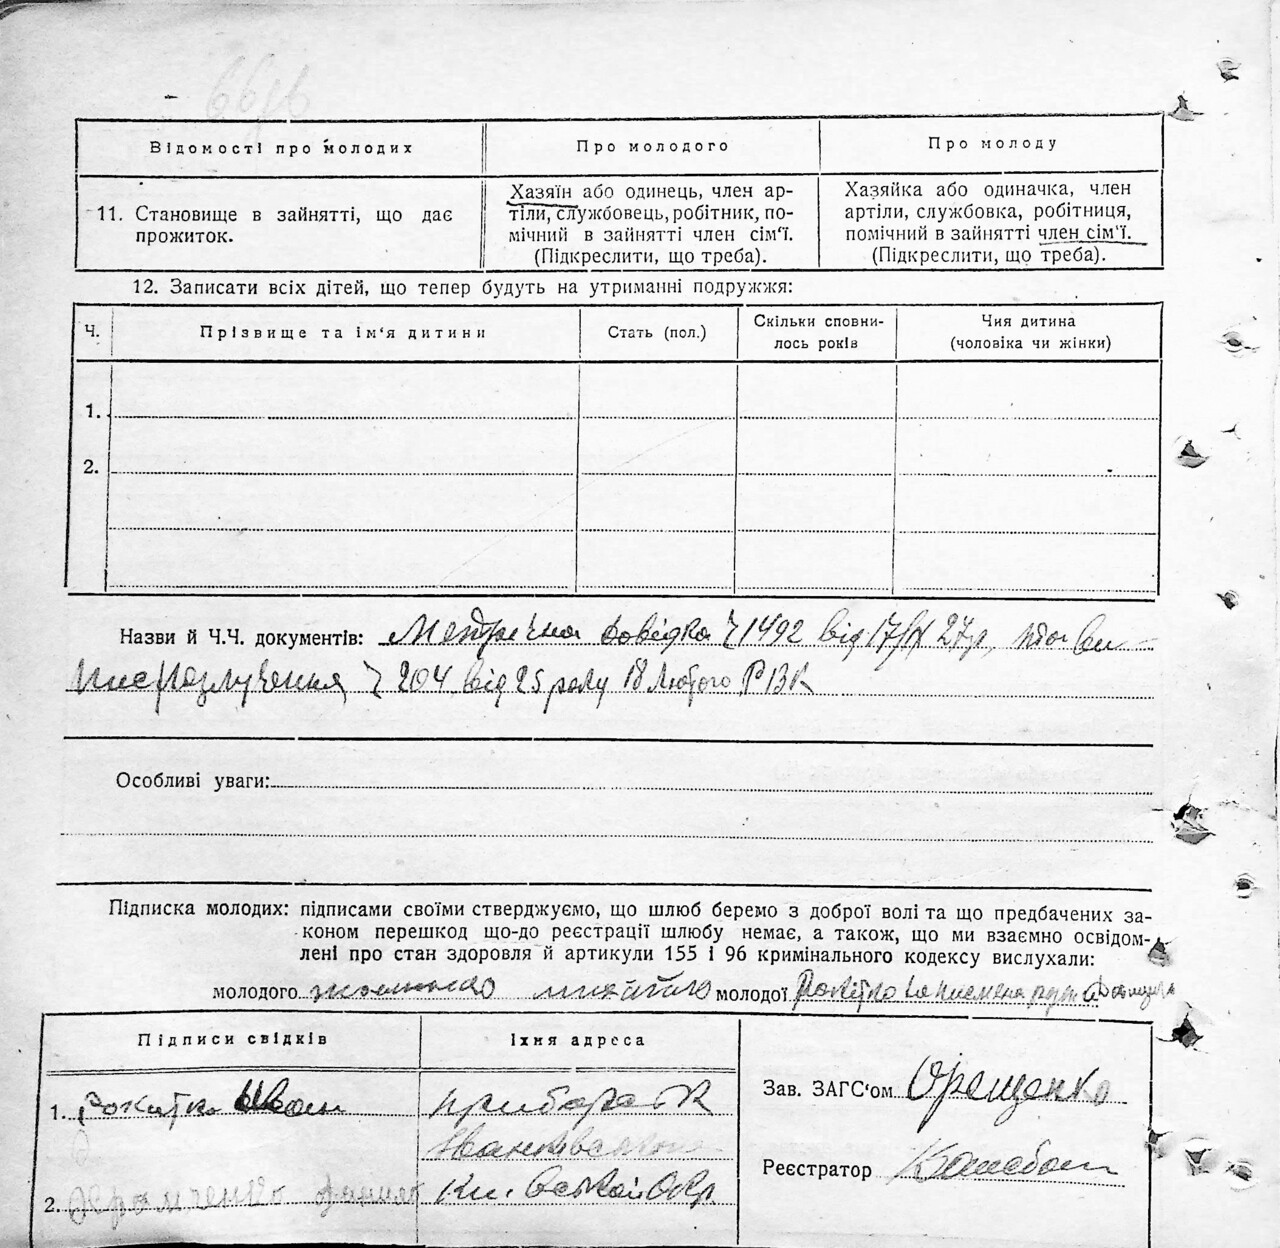 Відомості про молодих
Про молодого
Про молоду
11. Становище в зайнятті, що дає
прожиток.
Хазяїн або одинець, член ар-
тіли, службовець, робітник, по-
мічний в зайнятті член сім'ї.
(Підкреслити, що треба).
Хазяйка або одиначка, член
артіли, службовка, робітниця,
помічний в зайнятті член сім'ї.
(Підкреслити, що треба).
12. Записати всіх дітей, що тепер будуть на утриманні подружжя:
Ч.
Прізвище та ім'я дитини
Стать (пол.)
Скільки сповни-
лось років
Чия дитина
(чоловіка чи жінки)
1.
2.
Назви й Ч.Ч. документів: Метрична довідка ч 1492 від 27р, та ви-
пис розлучення ч 204 від 25 року 18 Лютого
Особливі уваги:
Підписка молодих: підписами своїми стверджуємо, що шлюб беремо з доброї волі та що предбачених за-
коном перешкод що-до реєстрації шлюбу немає, а також, що ми взаємно освідом-
лені про стан здоровля й артикули 155 і 96 кримінального кодексу вислухали:
молодого молодої
Підписи свідків
Їхня адреса
1. Рокитко Иван
2. Данило
Зав. ЗАГС'ом Орещенко
Реєстратор